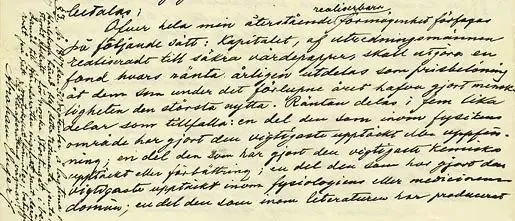 leidatas;
realiserbara
Öfver hela min återstående förmögenhet förfogas
på följande sätt: Kapitalet, af utredningsmännen
realiseradt till säkra värdepapper, skall utgöra en
fond hvars ränta årligen utdelas som prisbelöning
åt dem som under det förlupne året hafva gjort mensk-
ligheten den största nytta. Räntan delas i fem lika
delar som tillfalla: en del den som inom fysikens
område har gjort den vigtigaste upptäckt eller uppfin-
ning; en del den som har gjort den vigtigaste kemiska
upptäckt eller förbättring; en del den som har gjort den
vigtigaste upptäckt inom fysiologiens eller medicinens
domän; en del den som inom literaturen har producerat